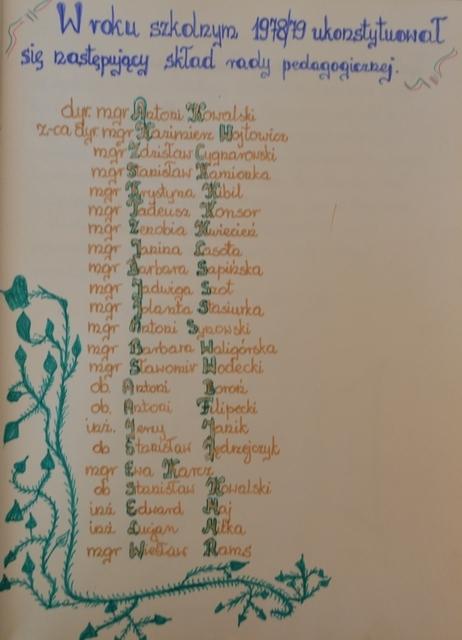 W roku szkolnym 1978/79 ukonstytuował
się następujący skład rady pedagogicznej.
dyr. mgr Antoni Kowalski
z-ca dyr mgr Kazimierz Wojtowicz
mgr Zdzisław Cygnarowski
mgr Stanisław Kamionka
mgr Krystyna Kibil
mgr Tadeusz Konsor
mgr Zenobia Kwiecień
mgr Janina Lasota
mgr Barbara Sapińska
mgr Jadwiga Szot
mgr Jolanta Stasiurka
mgr Antoni Synowski
mgr Barbara Waligórska
mgr Sławomir Wodecki
ob. Antoni Boroń
ob. Antoni Filipecki
inż. Jerzy Janik
ob Stanisław Jędrzejczyk
mgr Ewa Karcz
ob Stanisław Kowalski
inż Edward Maj
inż Lucjan Miłka
mgr Wiesław Rams